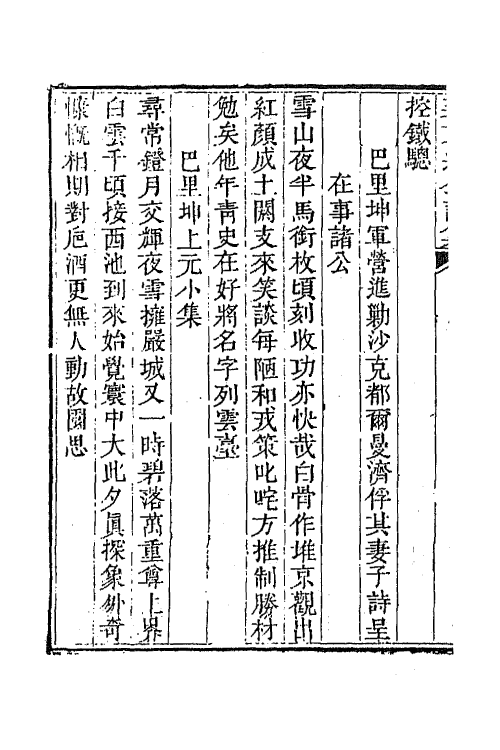 控鐵驄
巴里坤軍營進勦沙克都爾曼濟俘其妻子詩呈
在事諸公
雪山夜半馬銜枚頃刻收功亦快哉白骨作堆京觀出
紅顏成土閼支來笑談每陋和戎策叱咤方推制勝材
勉矣他年靑史在好將名字列雲臺
巴里坤上元小集
尋常鐙月交輝夜雪擁嚴城又一時碧落萬重尊上界
白雲千頃接西池到來始覺寰中大此夕眞探象外奇
慷慨相期對卮酒更無人動故園思